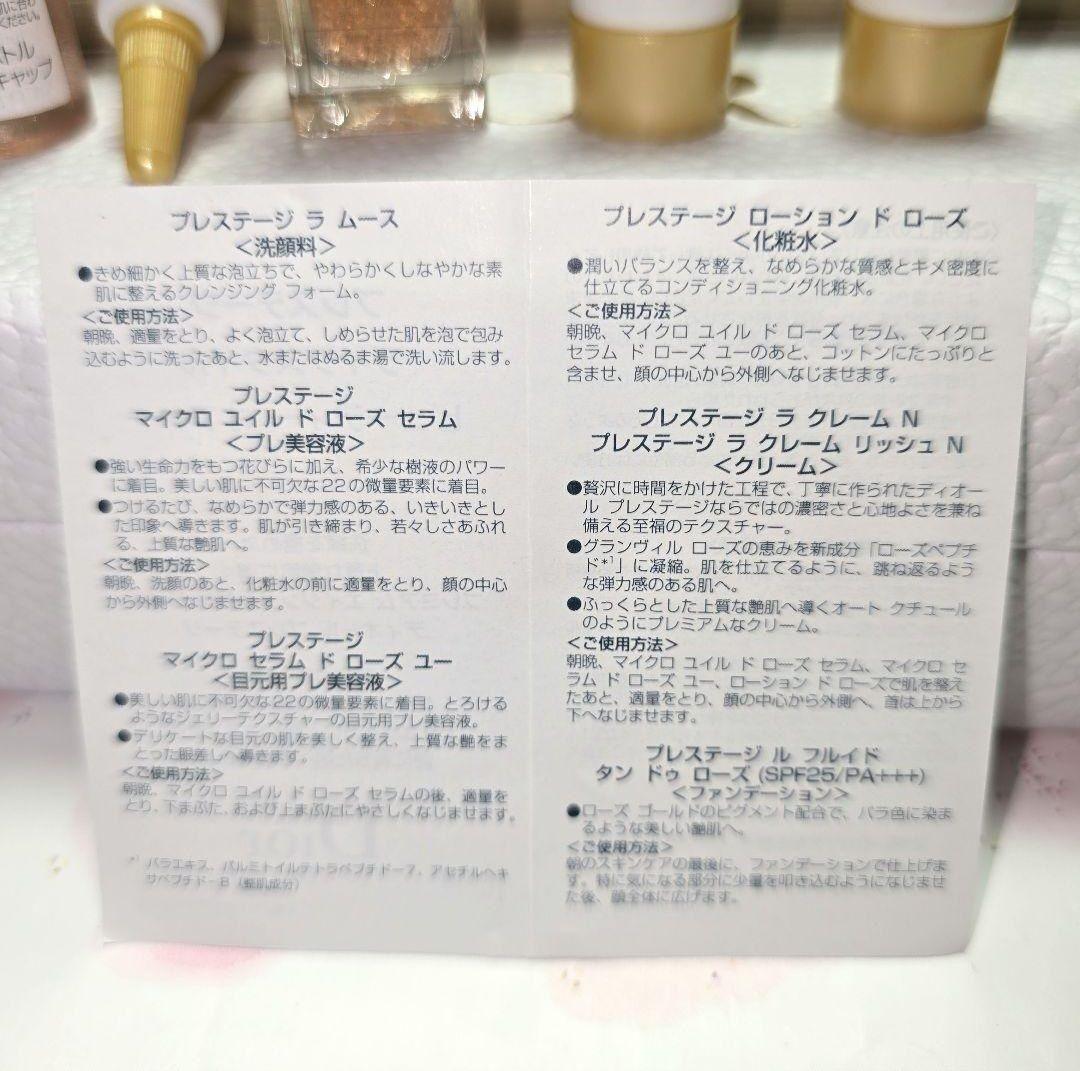 ください。
トル
キャップ
プレステージ ラ ムース
<洗顔料>
●きめ細かく上質な泡立ちで、やわらかくしなやかな素
肌に整えるクレンジング フォーム。
<ご使用方法>
朝晩、適量をとり、よく泡立て、しめらせた肌を泡で包み
込むように洗ったあと、水またはぬるま湯で洗い流します。
プレステージ
マイクロ ユイル ド ローズ セラム
<プレ美容液>
●強い生命力をもつ花びらに加え、希少な樹液のパワー
に着目。美しい肌に不可欠な22の微量要素に着目。
●つけるたび、なめらかで弾力感のある、いきいきとし
た印象へ導きます。肌が引き締まり、若々しさあふれ
る、上質な艶肌へ。
<ご使用方法>
朝晩、洗顔のあと、化粧水の前に適量をとり、顔の中心
から外側へなじませます。
プレステージ
マイクロ セラム ド ローズ ユー
<目元用プレ美容液>
●美しい肌に不可欠な22の微量要素に着目。とろける
ようなジェリーテクスチャーの目元用プレ美容液。
●デリケートな目元の肌を美しく整え、上質な艶をま
とった眼差しへ導きます。
<ご使用方法>
朝晩、マイクロ ユイル ド ローズ セラムの後、適量を
とり、下まぶた、および上まぶたにやさしくなじませます。
*¹ バラエキス、パルミトイルテトラペプチド-7、アセチルヘキ
サペプチド-8（整肌成分）
プレステージ ローション ド ローズ
<化粧水>
●潤いバランスを整え、なめらかな質感とキメ密度に
仕立てるコンディショニング化粧水。
<ご使用方法>
朝晩、マイクロ ユイル ド ローズ セラム、マイクロ
セラム ド ローズ ユーのあと、コットンにたっぷりと
含ませ、顔の中心から外側へなじませます。
プレステージ ラ クレーム N
プレステージ ラ クレーム リッシュ N
<クリーム>
●贅沢に時間をかけた工程で、丁寧に作られたディオー
ル プレステージならではの濃密さと心地よさを兼ね
備える至福のテクスチャー。
●グランヴィル ローズの恵みを新成分「ローズペプチ
ド*¹」に凝縮。肌を仕立てるように、跳ね返るよう
な弾力感のある肌へ。
●ふっくらとした上質な艶肌へ導くオート クチュール
のようにプレミアムなクリーム。
<ご使用方法>
朝晩、マイクロ ユイル ド ローズ セラム、マイクロ セ
ラム ド ローズ ユー、ローション ド ローズで肌を整え
たあと、適量をとり、顔の中心から外側へ、首は上から
下へなじませます。
プレステージ ル フルイド
タン ドゥ ローズ (SPF25/PA+++)
<ファンデーション>
●ローズ ゴールドのピグメント配合で、バラ色に染ま
るような美しい艶肌へ。
<ご使用方法>
朝のスキンケアの最後に、ファンデーションで仕上げま
す。特に気になる部分に少量を叩き込むようになじませ
た後、顔全体に広げます。